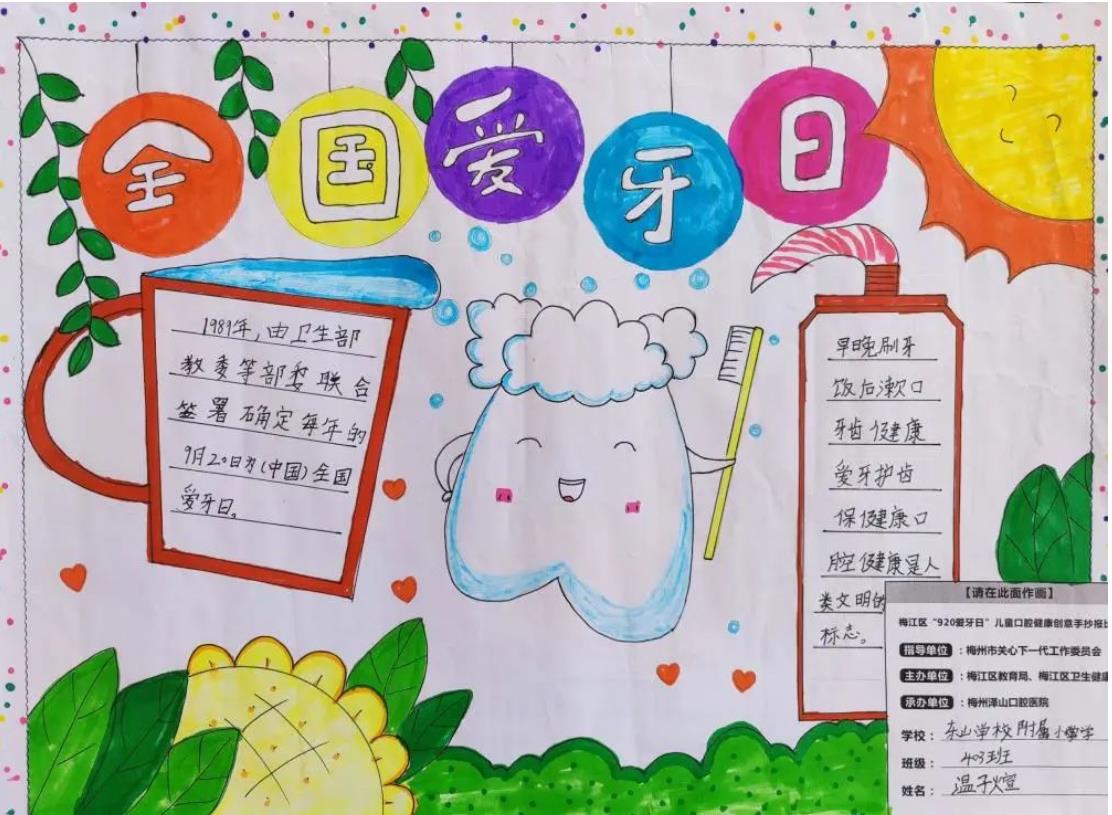 全国爱牙日
1989年,由卫生部
教委等部委联合
签署确定每年的
9月20日为(中国)全国
爱牙日。
早晚刷牙
饭后漱口
牙齿健康
爱牙护齿
保健康口
腔健康是人
类文明的
标志。
【请在此面作画】
梅江区“920爱牙日”儿童口腔健康创意手抄报比
指导单位:梅州市关心下一代工作委员会
主办单位:梅江区教育局、梅江区卫生健康
承办单位:梅州泽山口腔医院
学校:东山学校附属小学
班级:403班
姓名:温子煊